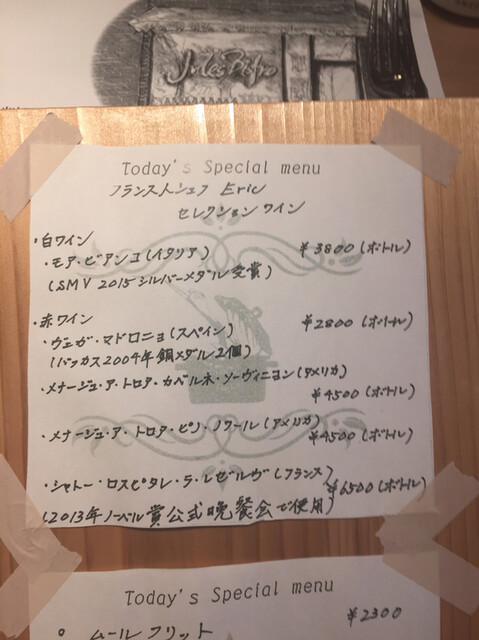 Jules Bistro
Today's Special menu
フランス人シェフ Eric
セレクション ワイン
・白ワイン
・モア・ビアンコ(イタリア) ¥3800(ボトル)
(SMV 2015 シルバーメダル受賞)
・赤ワイン
・ヴェガ・マドロニョ(スペイン) ¥2800(ボトル)
(バッカス2004年銅メダル2個)
・メナージュ・ア・トロア・カベルネ・ソーヴィニヨン(アメリカ)
¥4500(ボトル)
・メナージュ・ア・トロア・ピノ・ノワール(アメリカ)
¥4500(ボトル)
・シャトー・ロスピタレ・ラ・レゼルヴ(フランス)
¥6500(ボトル)
(2013年ノーベル賞公式晩餐会で使用)
Today's Special menu
¥2300
。ムール フリット